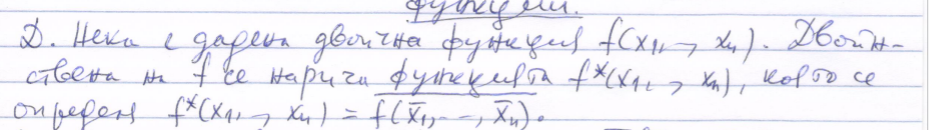 функции.
Д. Нека е дадена двоична функция f(x₁, , xₙ). Двойн-
ствена на f се нарича функцията f*(x₁, , xₙ), която се
определя f*(x₁, , xₙ) = f̅(x̅₁, --, x̅ₙ).